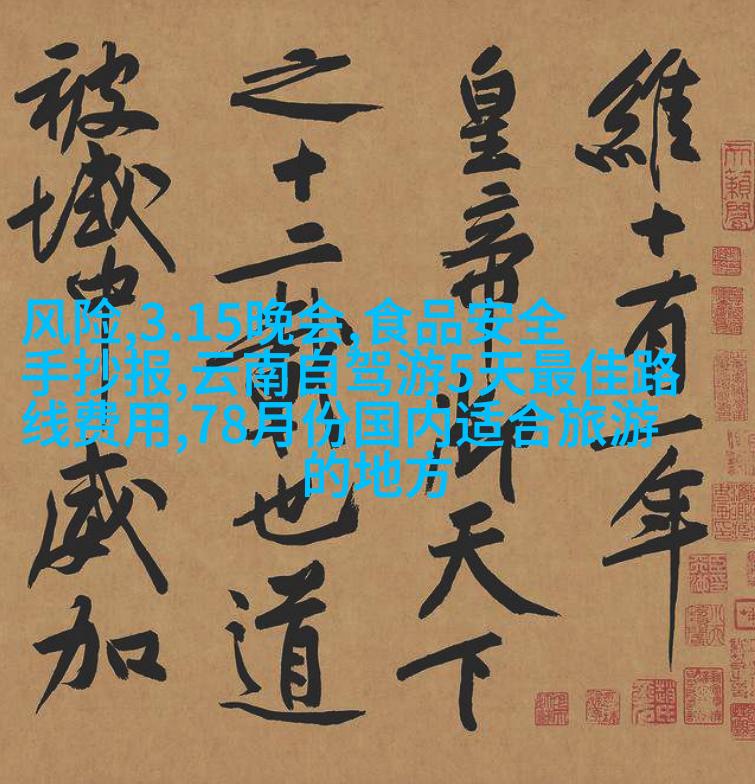 維十有一年
皇帝御天下
之十二載也道
被域中威加
风险,3.15晚会,食品安全
手抄报,云南自驾游5天最佳路
线费用,78月份国内适合旅游
的地方